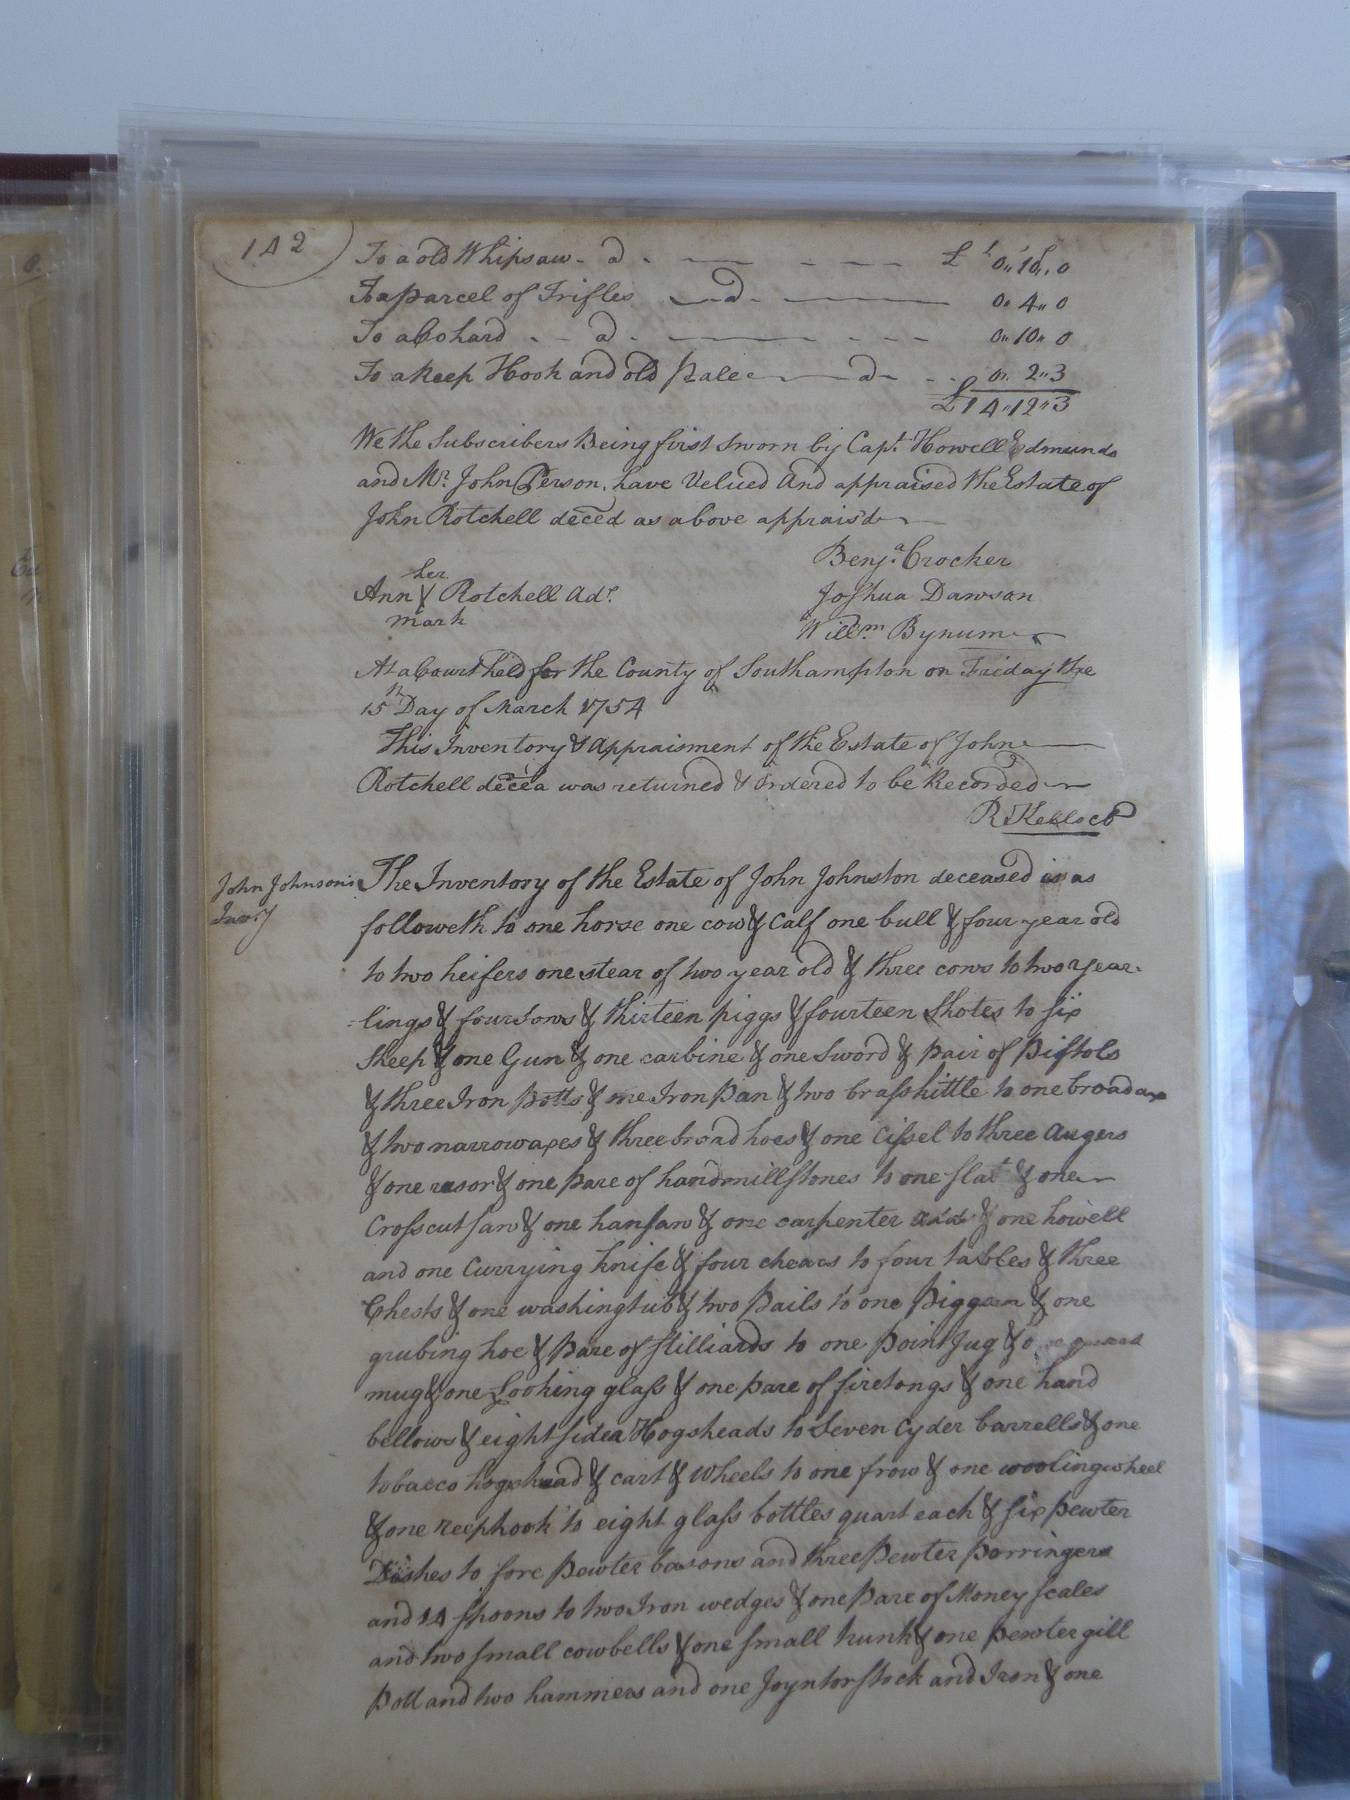 142
To a old Whipsaw - d £ 0,,10,,0
To a parcel of Trifles d 0,,4,,0
To a Cohard d 0,,10,,0
To a Reep Hook and old pale d 0,,2,,3
£14,,12,,3
We the Subscribers Being first sworn by Capt. Howell Edmunds
and Mr. John Person, have Velued And appraised the Estate of
John Rotchell deced as above apprais'd
Benja. Crocker
her
Ann X Rotchell Adr. Joshua Dawson
mark Willm. Bynum
At a Court held for the County of Southampton on Friday the
15th Day of March 1754
This Inventory & Appraisment of the Estate of John
Rotchell deced was returned & Ordered to be Recorded
R Kello CC
John Johnson's The Inventory of the Estate of John Johnston deceased is as
Invry followeth to one horse one cow & Calf one bull & four year old
to two heifers one stear of two year old & three cows to two year-
-lings & four Sows & thirteen piggs & fourteen Shotes to six
Sheep & one Gun & one carbine & one Sword & pair of Pistols
& three Iron Potts & one Iron Pan & two brass kittle to one broad ax
& two narrow axes & three broad hoes & one Cissel to three Augers
& one rasor & one pare of handmill stones to one & one
Crosscut saw & one hansaw & one carpenter & one howell
and one Currying knife & four chears to four tables & three
Chests & one washing tub & two Pails to one Piggen & one
grubing hoe & Pare of stilliards to one Point Jug & one quart
mug & one Looking glass & one pare of firetongs & one hand
bellows & eight sider Hogsheads to Seven Cyder barrells & one
tobacco hogshead & cart & Wheels to one frow & one wooling wheel
& one reephook to eight glass bottles quart each & six pewter
Dishes to fore Pewter basons and three Pewter Porringers
and 14 Spoons to two Iron wedges & one Pare of Money scales
and two small cowbells & one small trunk & one pewter gill
Pott and two hammers and one Joyntor stock and Iron & one